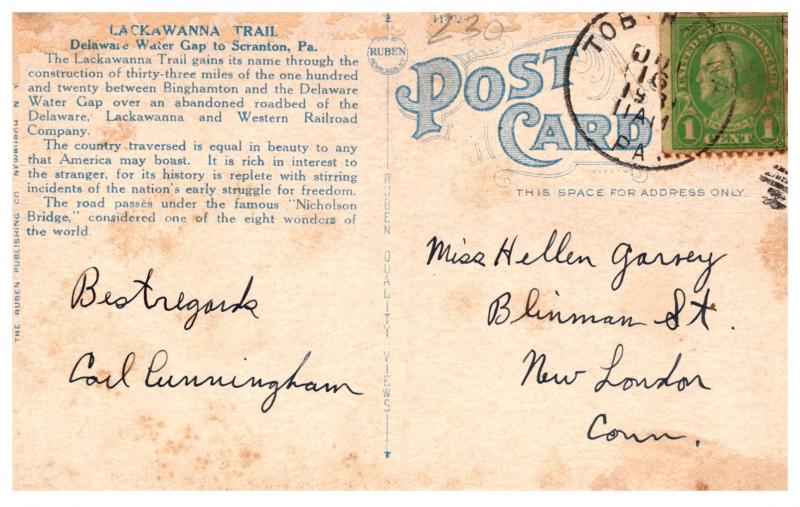 LACKAWANNA TRAIL
Delaware Water Gap to Scranton, Pa.
The Lackawanna Trail gains its name through the
construction of thirty-three miles of the one hundred
and twenty between Binghamton and the Delaware
Water Gap over an abandoned roadbed of the
Delaware, Lackawanna and Western Railroad
Company.
The country traversed is equal in beauty to any
that America may boast. It is rich in interest to
the stranger, for its history is replete with stirring
incidents of the nation's early struggle for freedom.
The road passes under the famous "Nicholson
Bridge," considered one of the eight wonders of
the world.
THE RUBEN PUBLISHING CO. NEWBURGH N Y
Best regards
Carl Cunningham
RUBEN
NEWBURGH, N.Y.
RUBEN QUALITY VIEWS
230
POST
CARD
THIS SPACE FOR ADDRESS ONLY
16
11 AM
PA.
UNITED STATES POSTAGE
FRANKLIN
1 CENT 1
Miss Hellen Garvey
Blinman St.
New London
Conn.